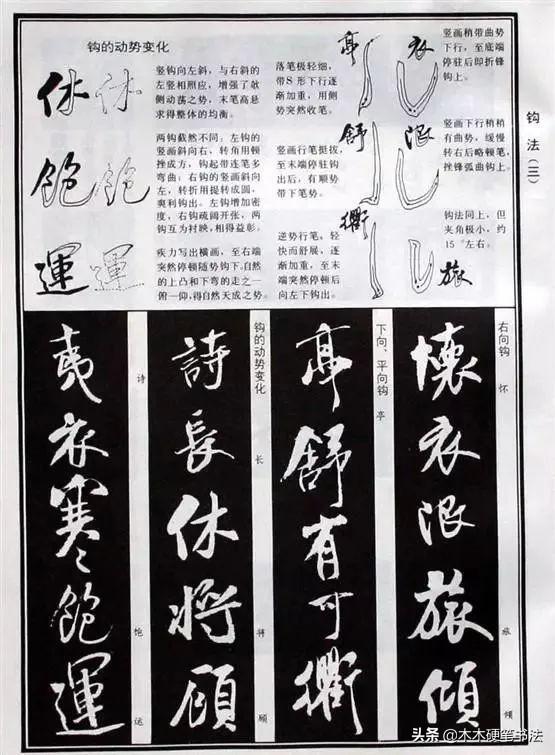 钩法(三)
钩的动势变化
休 休
竖钩向左斜,与右斜的
左竖相照应,增强了欹
侧动荡之势,末笔高悬
求得整体的均衡。
飽 飽
两钩截然不同:左钩的
竖画斜向右,转角用顿
挫成方,钩起带连笔多
弯曲;右钩的竖画斜向
左,转折用提转成圆,
奥利钩出。左钩增加密
度,右钩疏阔开张,两
钩互为衬映,相得益彰。
運 運
疾力写出横画,至右端
突然停顿随势钩下,自然
的上凸和下弯的走之一
俯一仰,得自然天成之势。
落笔极轻细,
带S形下行逐
渐加重,用侧
势突然收笔。
亭
竖画行笔挺拔,
至末端停驻钩
出后,有顺势
带下笔势。
舒
逆势行笔,轻
快而舒展,逐
渐加重,至末
端突然停顿后
向左下钩出。
衢
竖画稍带曲势
下行,至底端
停驻后即折锋
钩上。
衣
竖画下行稍稍
有曲势,缓慢
转右后略顿笔,
挫锋弧曲钩上。
浪
钩法同上,但
夹角极小,约
15°左右。
旅
右向钩 怀 旅 倾
懷衣浪旅傾
下向、平向钩 亭
亭舒有可衢
钩的动势变化 长 将 顾
詩長休將顧
诗 饱 运
夷衣寒飽運
头条@木木硬笔书法